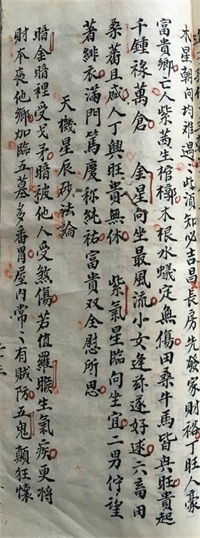 木星朝向均难遇此須知必吉昌長房先發家財裕丁旺人豪
富貴鄉二人柴萬生棺樽木根水蟻定無傷田桑牛馬皆興旺貴起
千鍾祿萬倉 金星向坐最風流小女逢雜遂好逑六畜田
桑蕃且盛人丁興旺貴無休 紫氣星臨向坐宜二男佇望
著緋衣滿門篤慶称純祐富貴双全慰所思
天機星辰砂法論
暗金暗裡受戈矛暗被他人受煞傷若值羅睺生氣疾更將
財本喪他鄉加臨五墓多番胃屋内常常有賊防五鬼顛狂懷